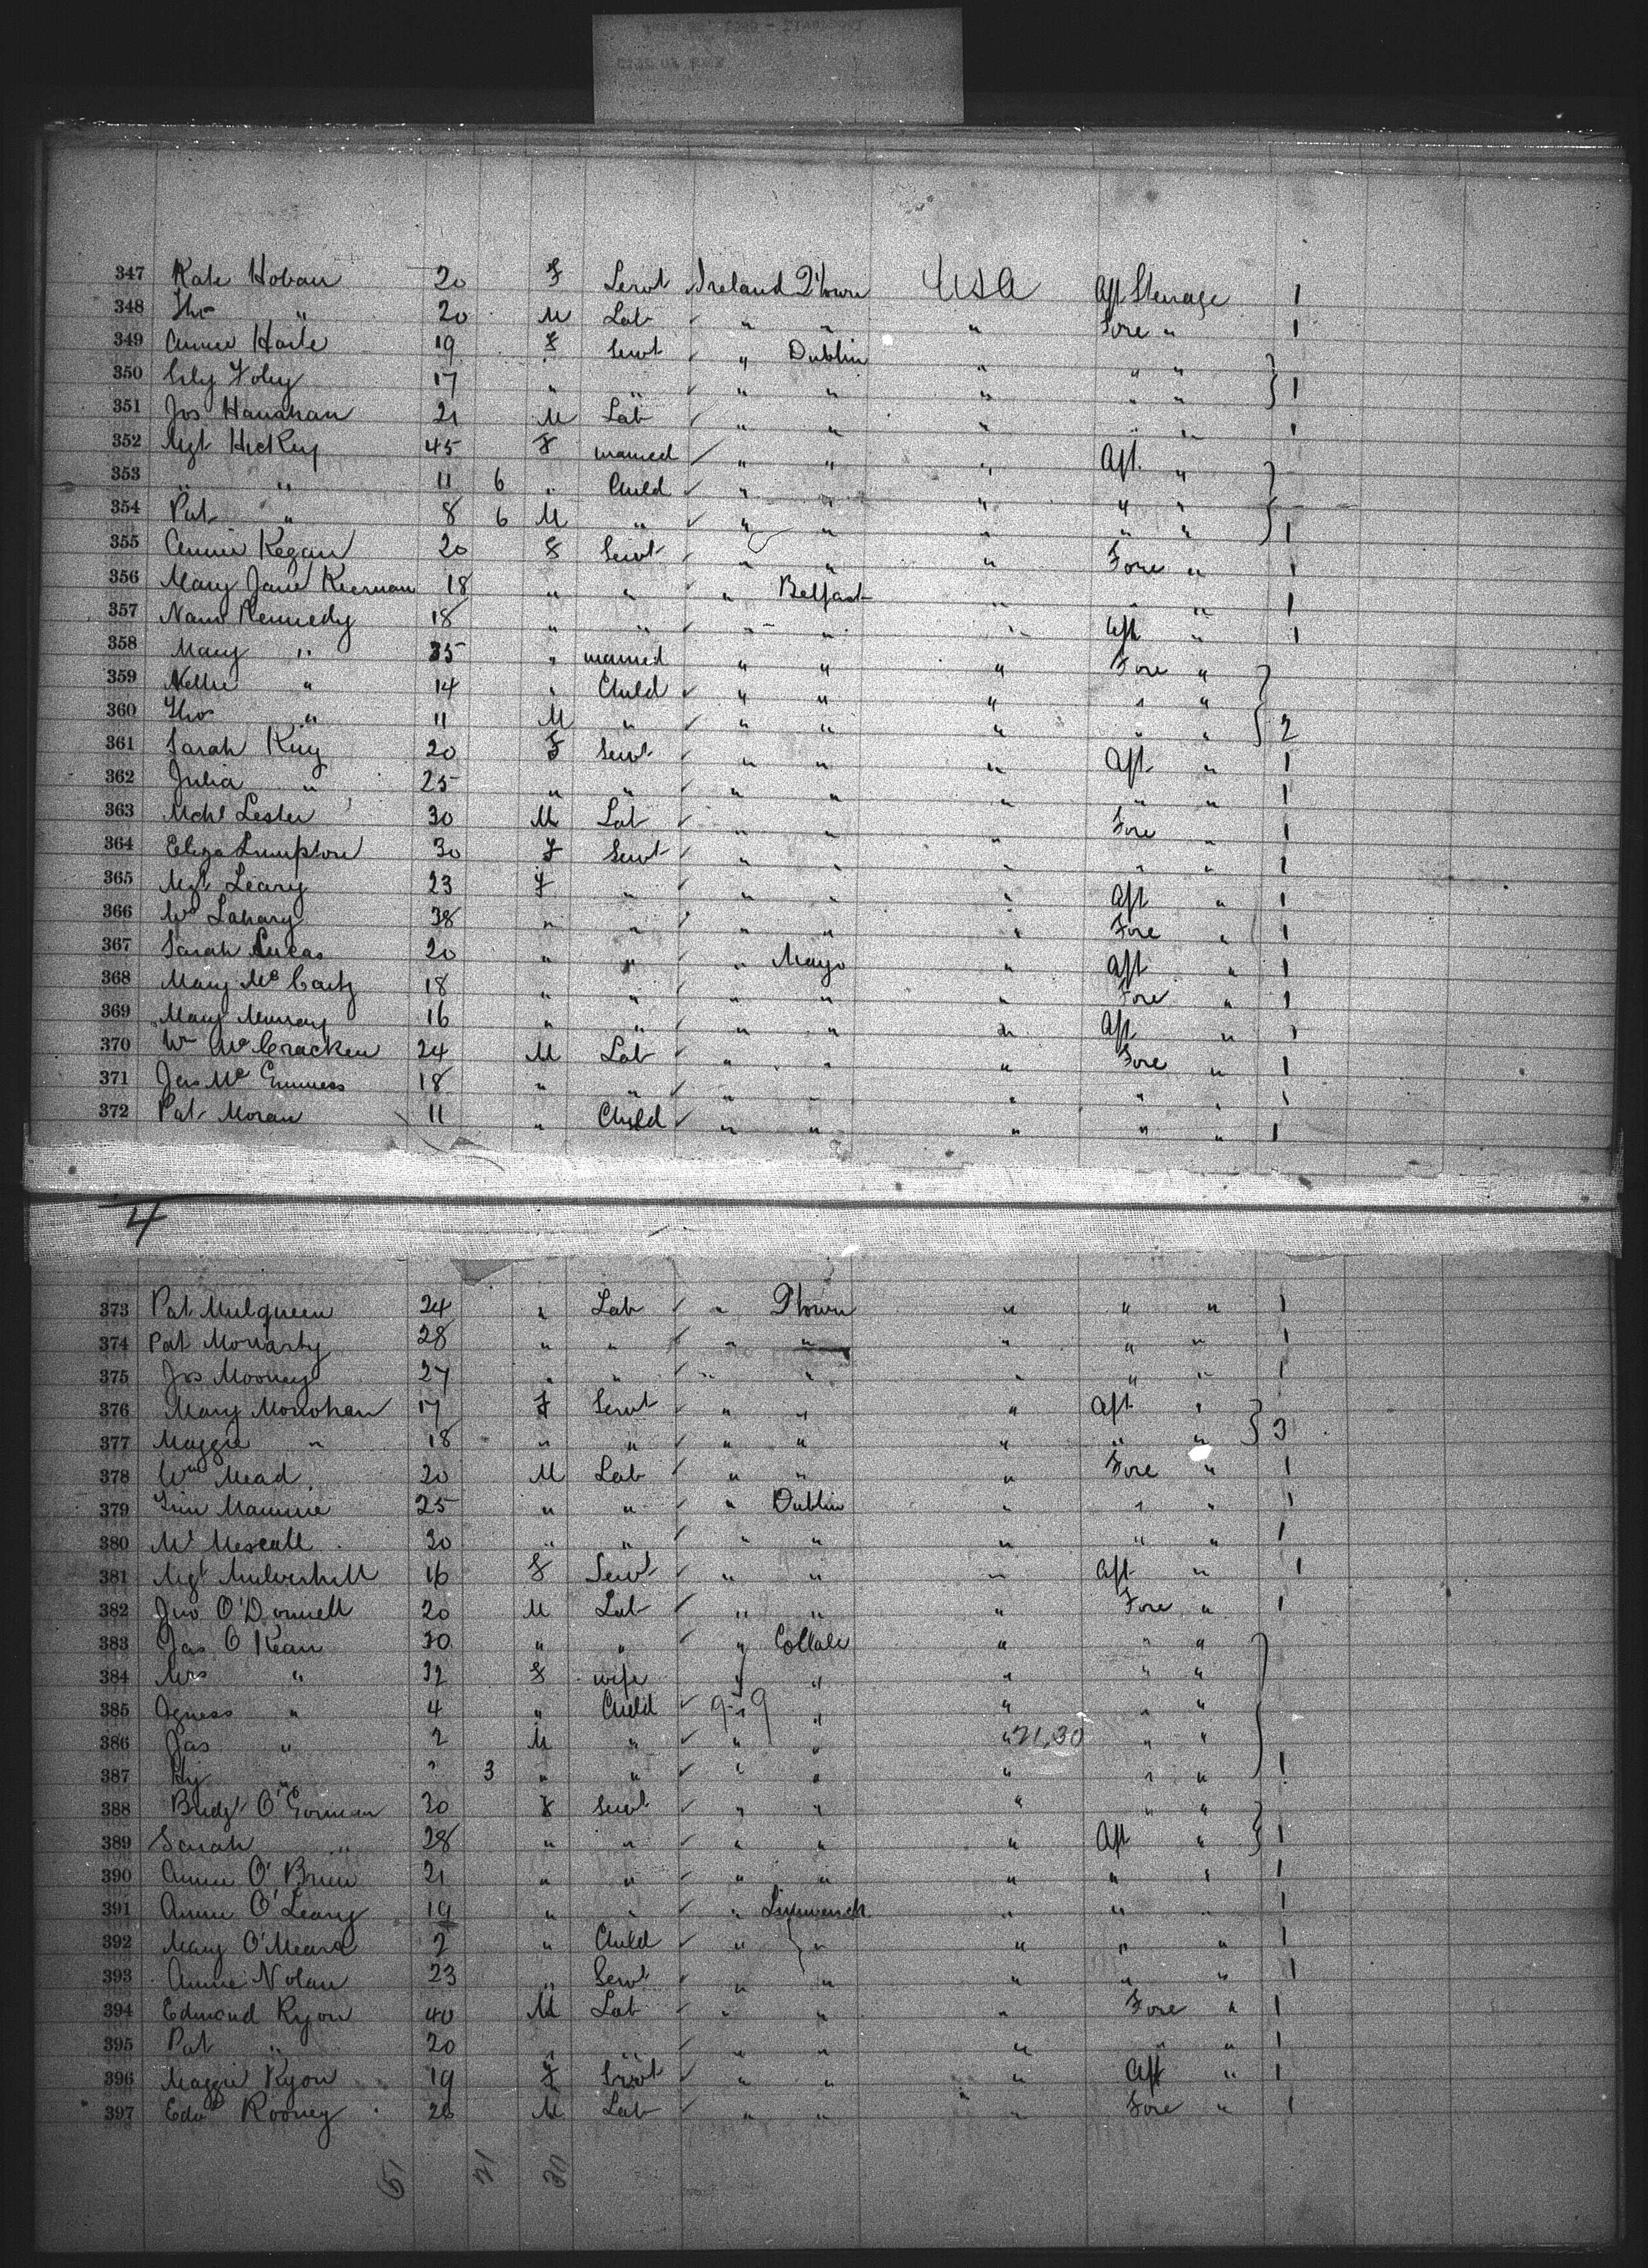 347 Kate Hoban 20 F Servt Ireland Qtown USA Aft Steerage 1
348 Thos " 20 M Lab " " " Fore " 1
349 Annie Harte 19 F Servt " Dublin " " "
350 Lily Foley 17 " " " " " " " } 1
351 Jos Hanahan 21 M Lab " " " " " 1
352 Mgt Hickey 45 F married " " " Aft "
353 " " 11 6 " Child " " " " "
354 Pat " 8 6 M " " " " " " } 1
355 Annie Kegan 20 F Servt " " " Fore " 1
356 Mary Jane Kiernan 18 " " " Belfast " " " 1
357 Kennedy 18 " " " " " Aft " 1
358 Mary " 35 " married " " " Fore "
359 Nellie " 14 " Child " " " " "
360 Thos " 11 M " " " " " " } 2
361 Sarah King 20 F Servt " " " Aft " 1
362 Julia " 25 " " " " " " " 1
363 Mchl Lester 30 M Lab " " " Fore " 1
364 Eliza 30 F Servt " " " " " 1
365 Mgt Leary 23 F " " " " Aft " 1
366 38 " " " " " Fore " 1
367 Sarah Lucas 20 " " " Mayo " Aft " 1
368 Mary McCarty 18 " " " " " Fore " 1
369 Mary Murray 16 " " " " " Aft " 1
370 Wm McCracken 24 M Lab " " " Fore " 1
371 Jas 18 " " " " " " " 1
372 Pat Moran 11 " Child " " " " " 1
4
373 Pat Mulqueen 24 " Lab " Qtown " " " 1
374 Pat Moriarty 28 " " " " " " " 1
375 Jos Mooney 27 " " " " " " " 1
376 Mary Monohan 17 F Servt " " " Aft "
377 Maggie " 18 " " " " " " " } 3
378 Wm Mead 20 M Lab " " " Fore " 1
379 25 " " " Dublin " " " 1
380 30 " " " " " " " 1
381 Mgt Mulverhill 16 F Servt " " " Aft " 1
382 Jno O'Donnell 20 M Lab " " " Fore " 1
383 Jas O'Kean 30 " " " " " "
384 Mrs " 32 F wife " " " " "
385 Agness " 4 " Child 9-19 " " " "
386 Jas " 2 M " " " " 21,30 " "
387 Hy " 3 " " " " " " " } 1
388 Bridgt O'Gorman 30 F Servt " " " " "
389 Sarah " 28 " " " " " Aft " } 1
390 Annie O'Brien 21 " " " " " " " 1
391 Annie O'Leary 19 " " " " " " 1
392 Mary O'Meara 2 " Child " " " " " 1
393 Annie Nolan 23 " Servt " " " " " 1
394 Edmond Ryon 40 M Lab " " " Fore " 1
395 Pat " 20 " " " " " " " 1
396 Maggie Ryon 19 F Servt " " " Aft " 1
397 Edwd Rooney 26 M Lab " " " Fore " 1
51 21 30